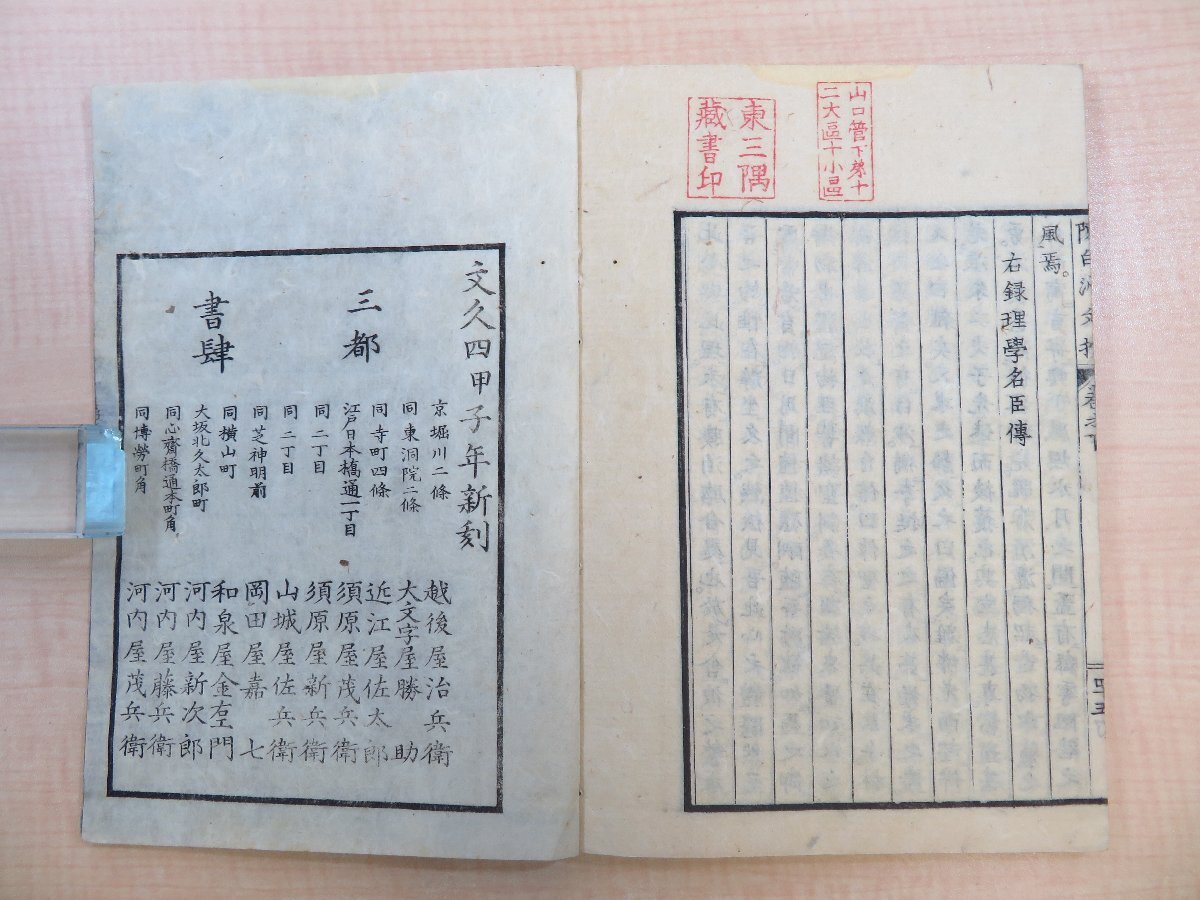 風焉。
右録理學名臣傳
山口管下第十
二大區十小區
東三隅
藏書印
文久四甲子年新刻
三都
書肆
京堀川二條 越後屋治兵衛
同東洞院二條 大文字屋勝助
同寺町四條 近江屋佐太郎
江戸日本橋通一丁目 須原屋茂兵衛
同二丁目 須原屋新兵衛
同二丁目 山城屋佐兵衛
同芝神明前 岡田屋嘉七
同横山町 和泉屋金右エ門
大坂北久太郎町 河内屋新次郎
同心齋橋通本町角 河内屋藤兵衛
同博勞町角 河内屋茂兵衛